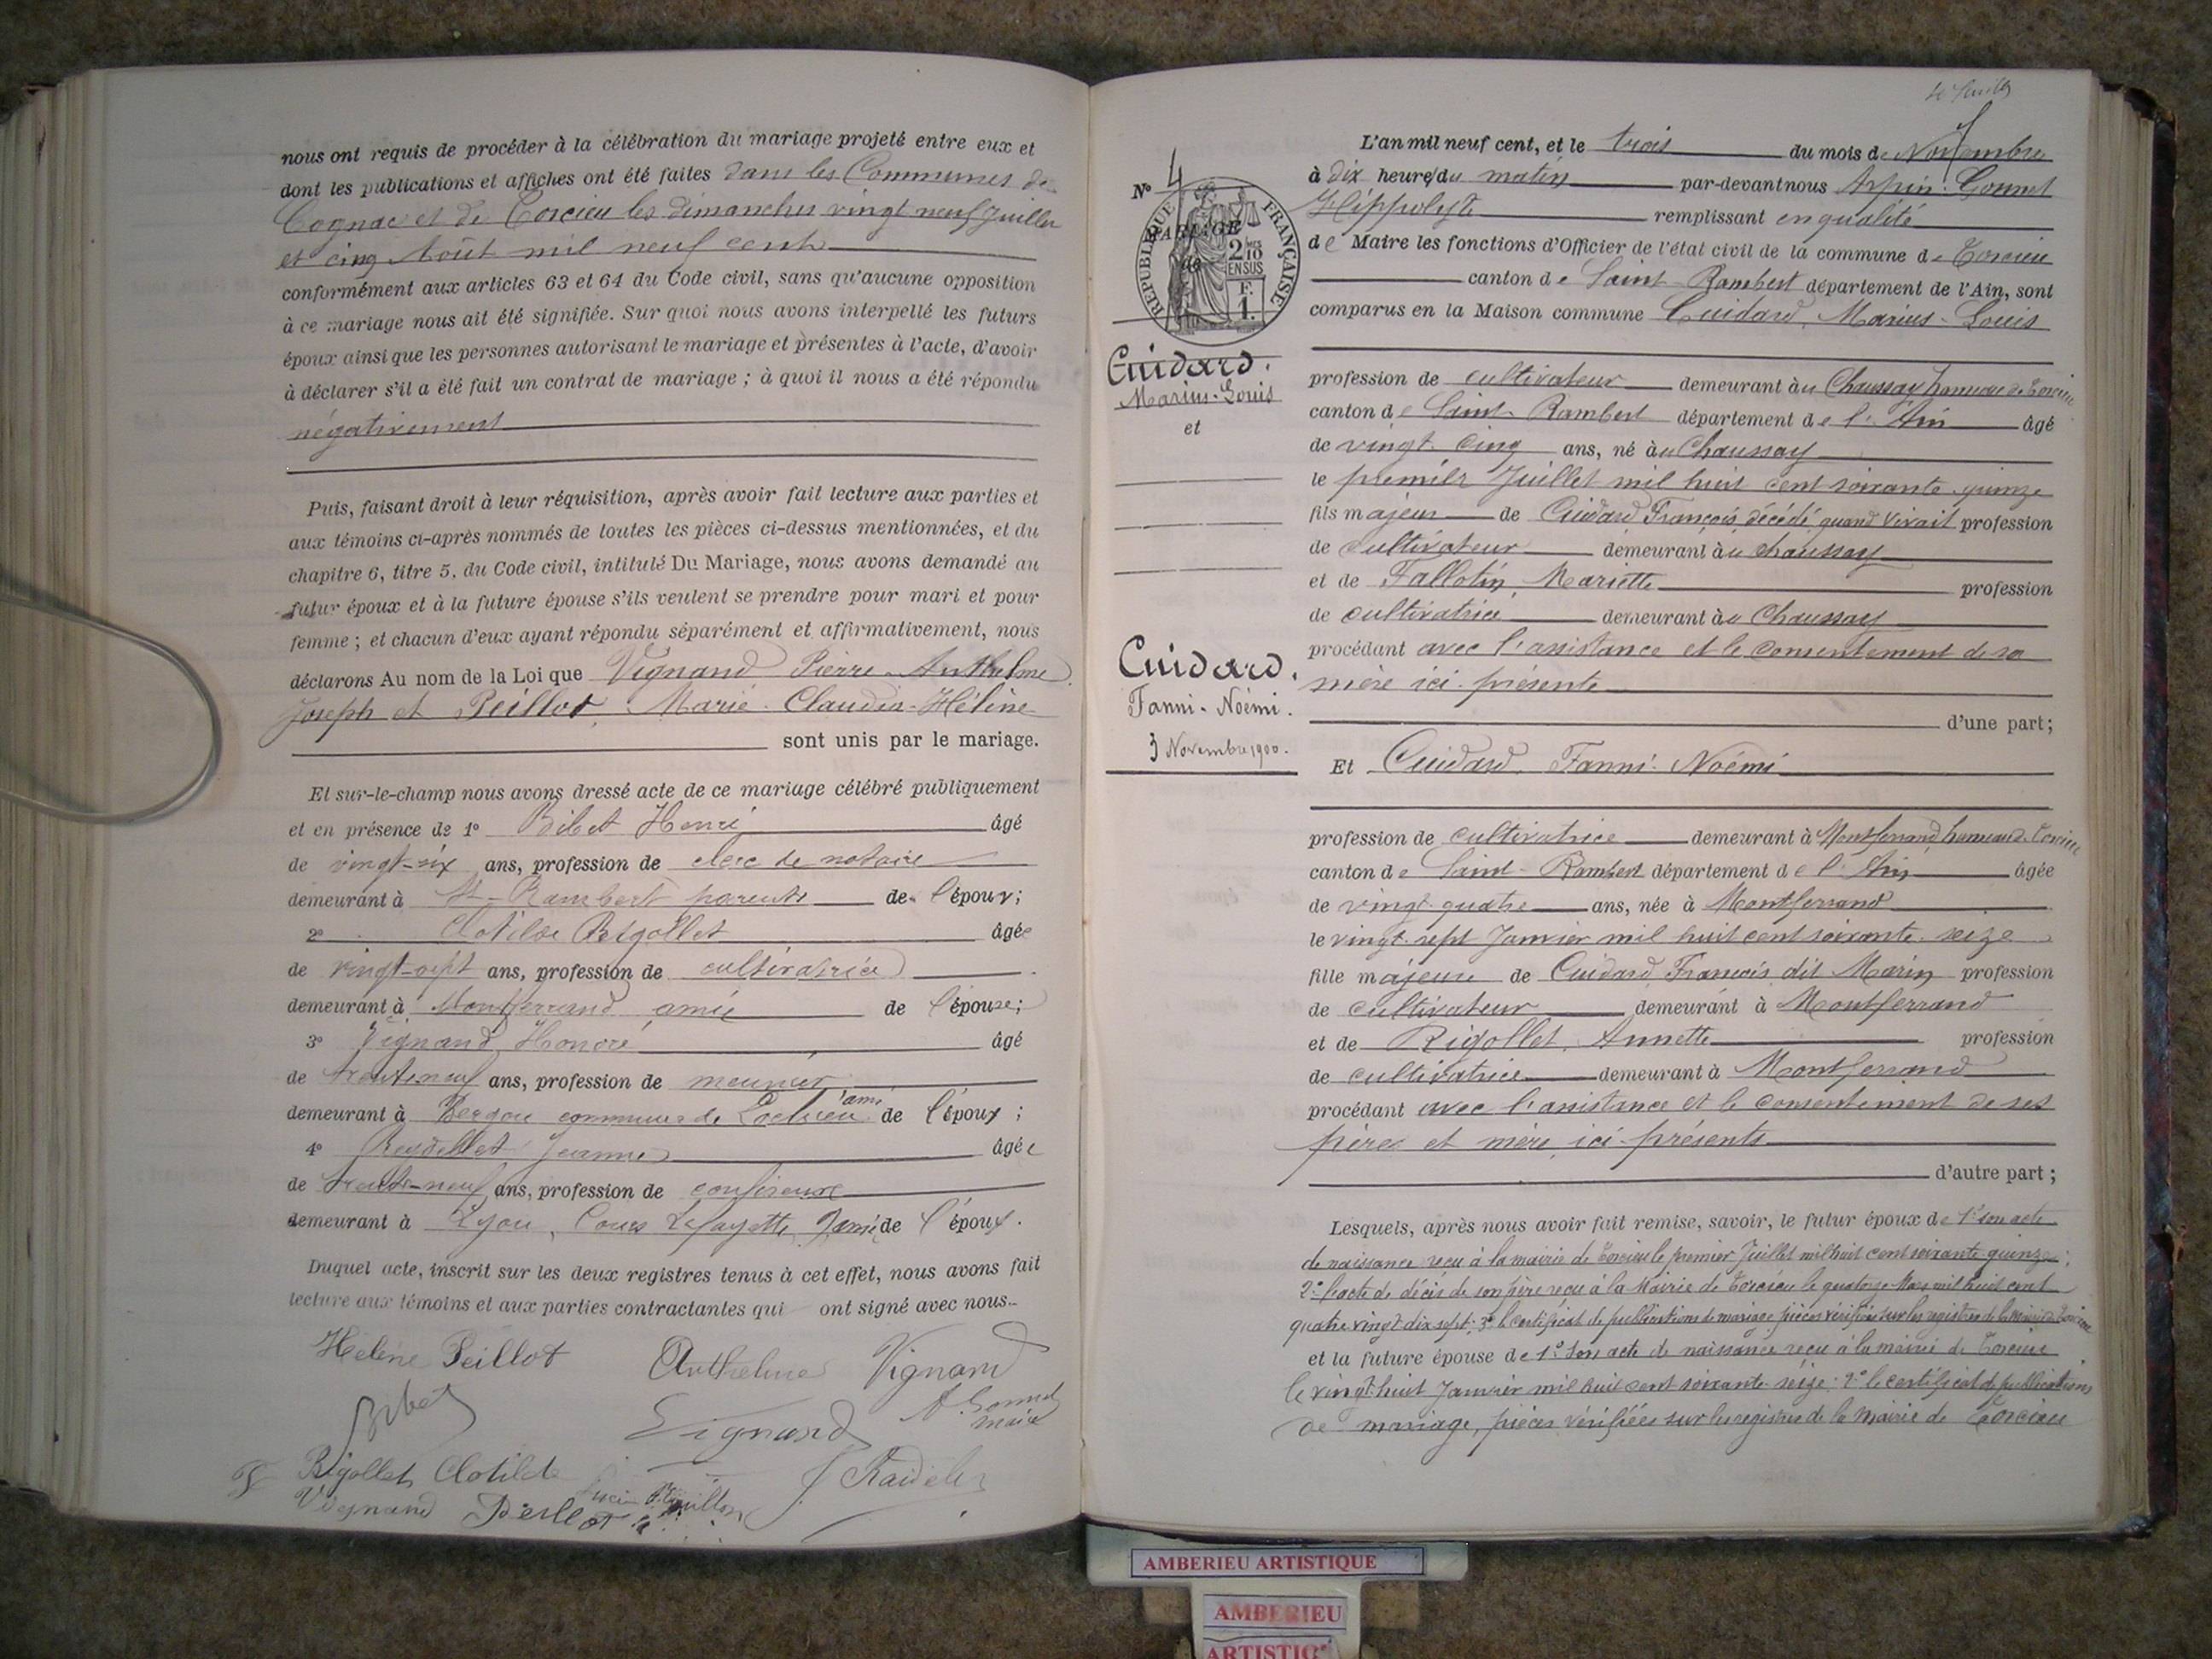 nous ont requis de procéder à la célébration du mariage projeté entre eux et
dont les publications et affiches ont été faites dans les Communes de
Cognac et de Torcieu les dimanches vingt neuf Juillet
et cinq Août mil neuf cent
conformément aux articles 63 et 64 du Code civil, sans qu'aucune opposition
à ce mariage nous ait été signifiée. Sur quoi nous avons interpellé les futurs
époux ainsi que les personnes autorisant le mariage et présentes à l'acte, d'avoir
à déclarer s'il a été fait un contrat de mariage ; à quoi il nous a été répondu
négativement
Puis, faisant droit à leur réquisition, après avoir fait lecture aux parties et
aux témoins ci-après nommés de toutes les pièces ci-dessus mentionnées, et du
chapitre 6, titre 5, du Code civil, intitulé Du Mariage, nous avons demandé au
futur époux et à la future épouse s'ils veulent se prendre pour mari et pour
femme ; et chacun d'eux ayant répondu séparément et affirmativement, nous
déclarons Au nom de la Loi que Vignand Pierre-Anthelme
Joseph et Peillot, Marie-Claudia-Hélène
sont unis par le mariage.
Et sur-le-champ nous avons dressé acte de ce mariage célébré publiquement
et en présence de 1° Bibet Henri âgé
de vingt-six ans, profession de clerc de notaire
demeurant à St-Rambert parente de l'époux;
2° Clotilde Rigollet âgée
de vingt-sept ans, profession de cultivatrice
demeurant à Montferrand amie de l'épouse;
3° Vignand Honoré âgé
de trente neuf ans, profession de meunier
demeurant à commune de ami de l'époux ;
4° Jeanne âgée
de trente-neuf ans, profession de
demeurant à Lyon, Cours Lafayette, amie de l'époux.
Duquel acte, inscrit sur les deux registres tenus à cet effet, nous avons fait
lecture aux témoins et aux parties contractantes qui ont signé avec nous.
Hélène Peillot Anthelme Vignand
Bibet Vignand A. Gonnet
maire
Rigollet Clotilde
Vignand Peillot
N° 4
MARIAGE
de
RÉPUBLIQUE FRANÇAISE
2/10 EN SUS
F. 1.
Cuidard.
Marius-Louis
et
Cuidard.
Fanni-Noémi.
3 Novembre 1900.
L'an mil neuf cent, et le trois du mois de Novembre
à dix heure du matin par-devant nous Arpin-Gonnet
Hippolyte remplissant en qualité
de Maire les fonctions d'Officier de l'état civil de la commune de Torcieu
canton de Saint-Rambert département de l'Ain, sont
comparus en la Maison commune Cuidard, Marius-Louis
profession de cultivateur demeurant à u Chaussay hameau de Torcieu
canton de Saint-Rambert département de l'Ain âgé
de vingt-cinq ans, né à u Chaussay
le premier Juillet mil huit cent soixante-quinze
fils majeur de Cuidard François, décédé quand vivait profession
de cultivateur demeurant à u Chaussay
et de Fallotin, Mariette profession
de cultivatrice demeurant à u Chaussay
procédant avec l'assistance et le consentement de sa
mère ici-présente
d'une part;
Et Cuidard Fanni-Noémi
profession de cultivatrice demeurant à Montferrand hameau de Torcieu
canton de Saint-Rambert département de l'Ain âgée
de vingt-quatre ans, née à Montferrand
le vingt-sept Janvier mil huit cent soixante-seize
fille majeure de Cuidard François dit Marin profession
de cultivateur demeurant à Montferrand
et de Rigollet, Annette profession
de cultivatrice demeurant à Montferrand
procédant avec l'assistance et le consentement de ses
père et mère, ici-présents
d'autre part ;
Lesquels, après nous avoir fait remise, savoir, le futur époux de 1° son acte
de naissance reçu à la mairie de Torcieu le premier Juillet mil huit cent soixante-quinze;
2° l'acte de décès de son père reçu à la Mairie de Torcieu le quatorze Mars mil huit cent
quatre vingt dix sept; 3° le certificat de publications de mariage pièces vérifiées sur les registres de la mairie de Torcieu
et la future épouse de 1° Son acte de naissance reçu à la mairie de Torcieu
le vingt-huit Janvier mil huit cent soixante-seize; 2° le certificat de publications
de mariage, pièces vérifiées sur les registres de la Mairie de Torcieu
AMBERIEU ARTISTIQUE
AMBERIEU
ARTISTIQ